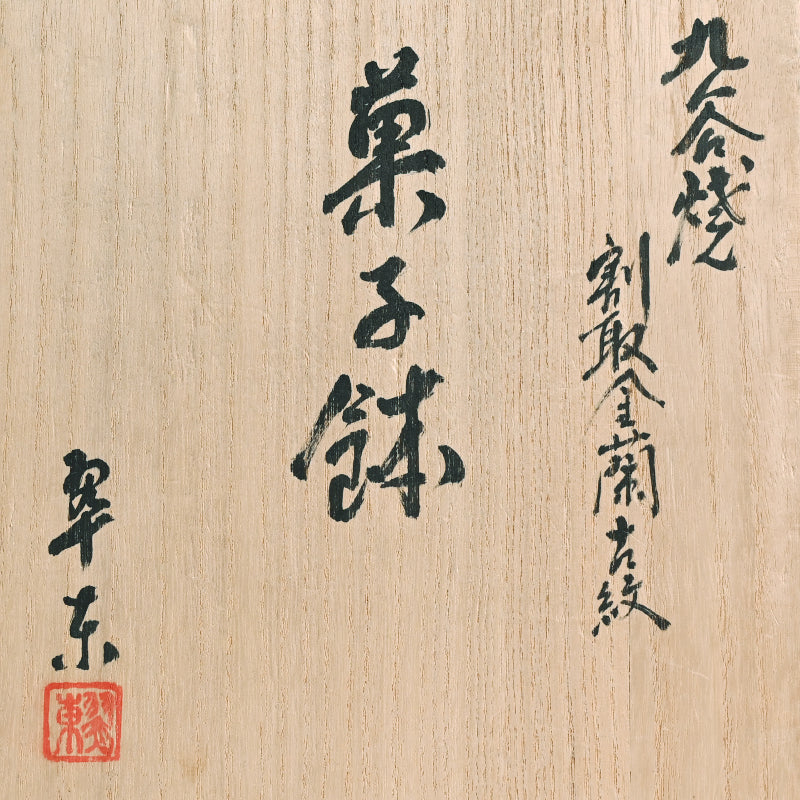 九谷焼
割取金蘭古紋
菓子鉢
翠東
翠東